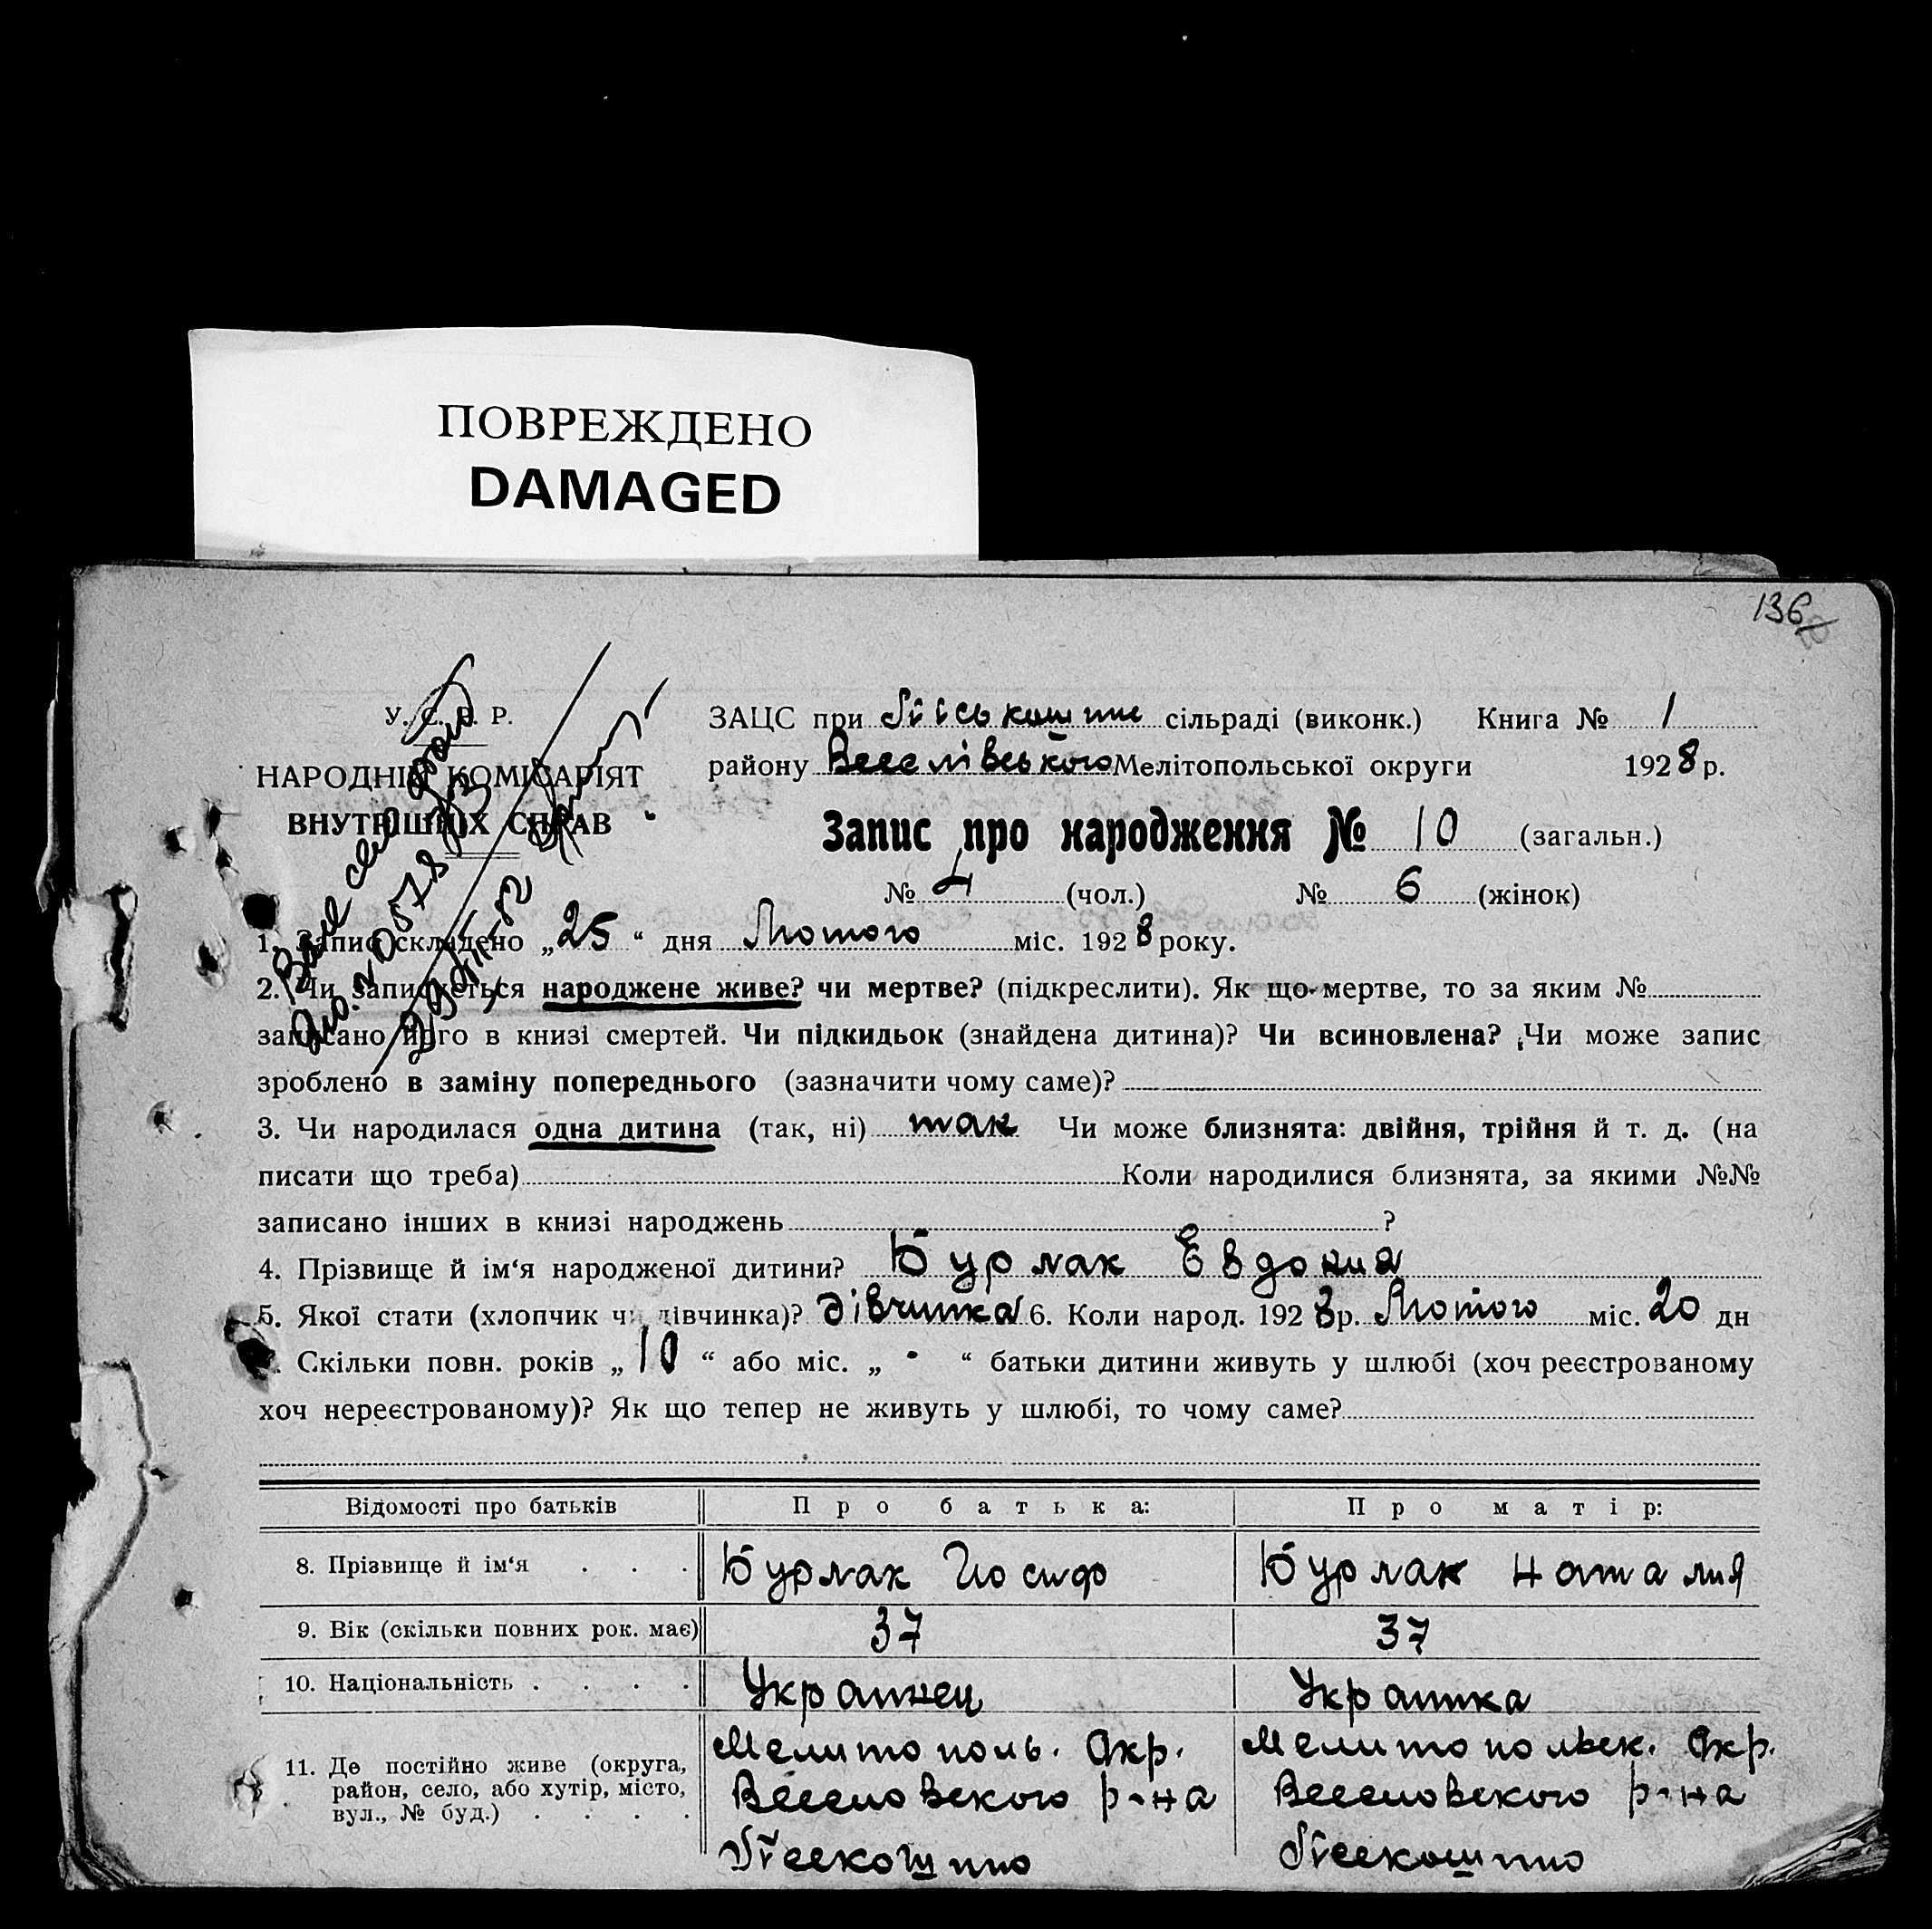 ПОВРЕЖДЕНО
DAMAGED
136
У. С. Р. Р.
НАРОДНІЙ КОМІСАРІЯТ
ВНУТРІШНІХ СПРАВ
ЗАЦС при сільраді (виконк.) Книга № 1
району Веселівського Мелітопольської округи 1928 р.
Запис про народження № 10 (загальн.)
№ 4 (чол.) № 6 (жінок)
1. Запис складено „25“ дня Лютого міс. 1928 року.
2. Чи записується народжене живе? чи мертве? (підкреслити). Як що мертве, то за яким №
записано його в книзі смертей. Чи підкидьок (знайдена дитина)? Чи всиновлена? Чи може запис
зроблено в заміну попереднього (зазначити чому саме)?
3. Чи народилася одна дитина (так, ні) так Чи може близнята: двійня, трійня й т. д. (на
писати що треба) Коли народилися близнята, за якими №№
записано інших в книзі народжень ?
4. Прізвище й ім‘я народженої дитини? Бурлак Евдокия
5. Якої стати (хлопчик чи дівчинка)? дівчинка 6. Коли народ. 1928 р. Лютого міс. 20 дн
Скільки повн. років „10“ або міс. „ “ батьки дитини живуть у шлюбі (хоч реєстрованому
хоч нереєстрованому)? Як що тепер не живуть у шлюбі, то чому саме?
Відомості про батьків Про батька: Про матір:
8. Прізвище й ім‘я Бурлак Иосиф Бурлак Наталия
9. Вік (скільки повних рок. має) 37 37
10. Національність Украинец Украинка
11. Де постійно живе (округа, район, село, або хутір, місто, вул., № буд.) Мелитополь. Окр. Мелитопольск. Окр.
Веселовского р-на Веселовского р-на